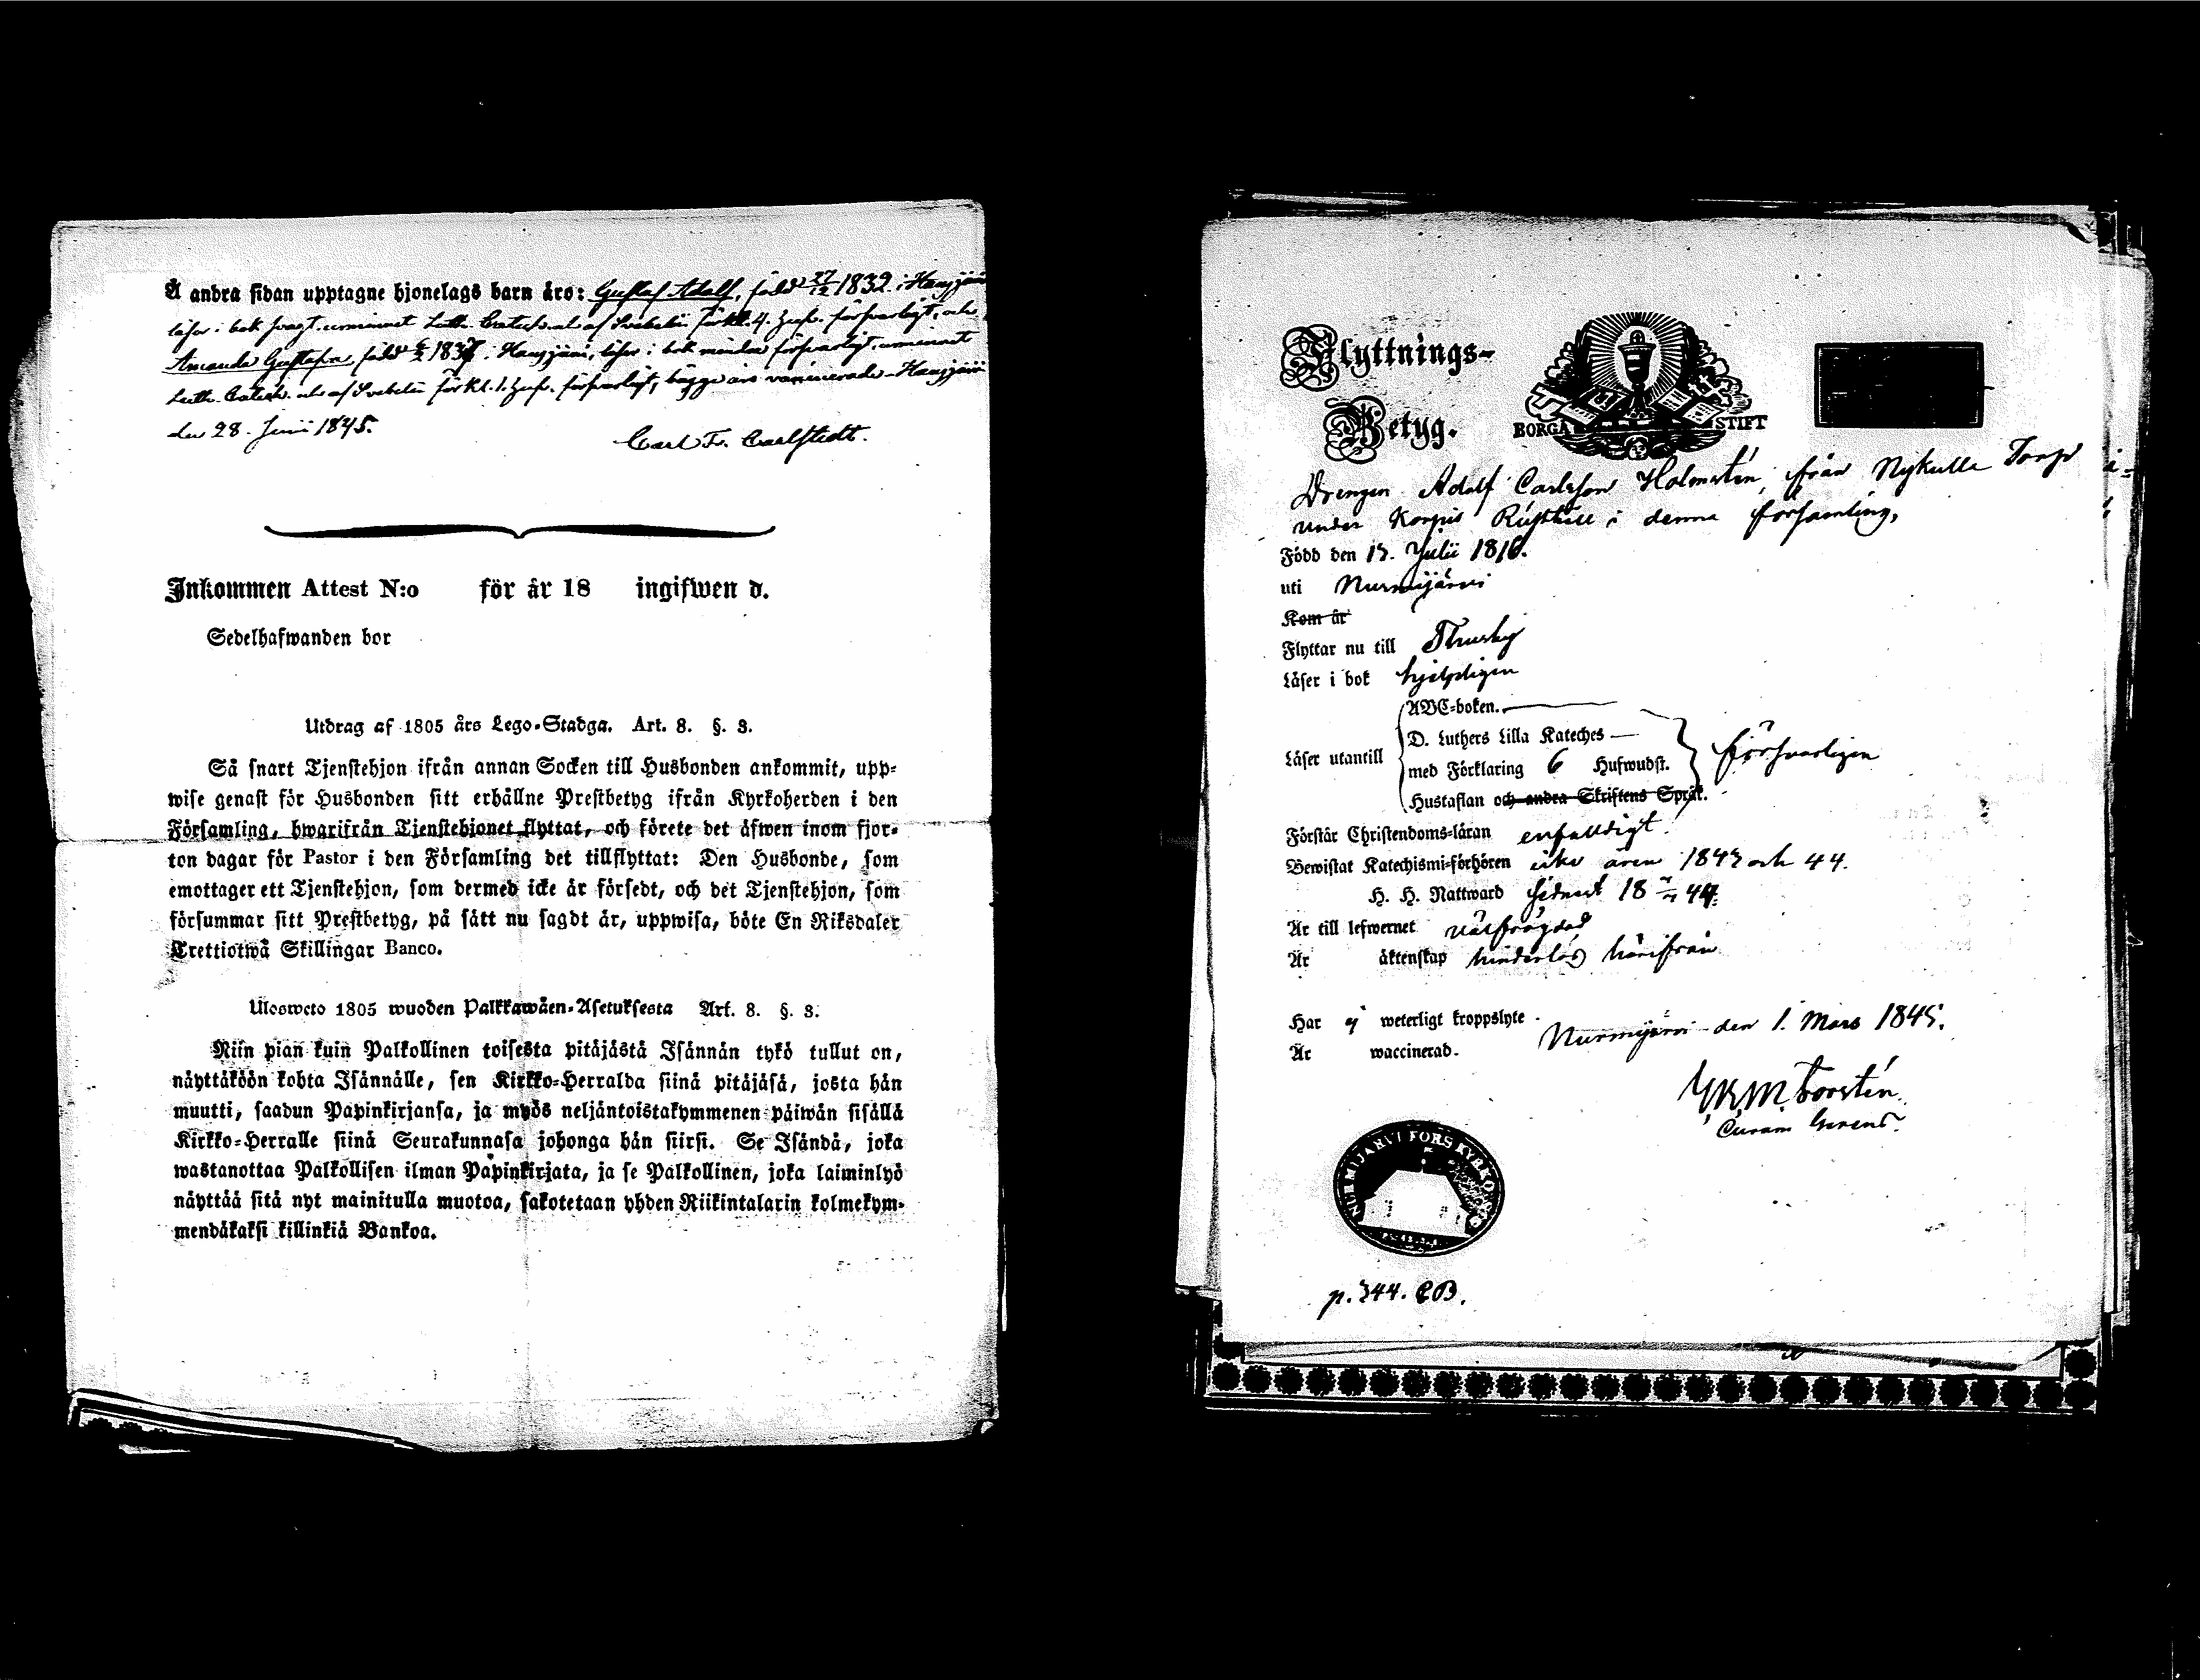 Å andra sidan upptagne hjonelags barn äro: Gustaf Adolf, född 27/12 1832 i
läser i bok svagt, utur minnet Luth. af Svebelii förkl. 4. försvarligt, och
Amanda Gustafva, född i Hausjärvi, läser i bok mindre försvarligt,
Luth. af Svebelii förkl. 1. försvarligt, bägge äro vaccinerade. Hausjärvi
den 28. Junii 1845.
Carl Fr. Carlstedt.
Inkommen Attest N:o för år 18 ingifwen d.
Sedelhafwanden bor
Utdrag af 1805 års Lego-Stadga. Art. 8. §. 3.
Så snart Tjenstehjon ifrån annan Socken till Husbonden ankommit, upp-
wise genast för Husbonden sitt erhållne Prestbetyg ifrån Kyrkoherden i den
Församling, hwarifrån Tjenstehjonet flyttat, och förete det äfwen inom fjor-
ton dagar för Pastor i den Församling det tillflyttat: Den Husbonde, som
emottager ett Tjenstehjon, som dermed icke är försedt, och det Tjenstehjon, som
försummar sitt Prestbetyg, på sätt nu sagdt är, uppwisa, böte En Riksdaler
Trettiotwå Skillingar Banco.
Ulosweto 1805 wuoden Palkkawäen-Asetuksesta Art. 8. §. 3.
Niin pian kuin Palkollinen toisesta pitäjästä Isännän tykö tullut on,
näyttäköön kohta Isännälle, sen Kirkko-Herralda siinä pitäjäsä, josta hän
muutti, saadun Papinkirjansa, ja myös neljäntoistakymmenen päiwän sisällä
Kirkko-Herralle siinä Seurakunnasa johonga hän siirsi. Se Isändä, joka
wastanottaa Palkollisen ilman Papinkirjata, ja se Palkollinen, joka laiminlyö
näyttää sitä nyt mainitulla muotoa, sakotetaan yhden Riikintalarin kolmekym-
mendäkaksi killinkiä Bankoa.
Flyttnings-
Betyg.
BORGÅ STIFT
Drengen Adolf Carlsson Holmstén, från Nykulla Torp
under Korpis Rusthåll i denna församling,
Född den 15. Julii 1816.
uti Nurmijärvi
Kom år
Flyttar nu till Thusby
Läser i bok hjelpligen
ABC-boken.
D. Luthers Lilla Kateches
Läser utantill med Förklaring 6 Hufwudst. försvarligen
Hustaflan och andra Skriftens Språk.
Förstår Christendoms-läran enfalldigt.
Bewistat Katechismi-förhören åren 1843 och 44.
H. H. Nattward sednast 18 44.
Är till lefwernet välfrägdad
Är äktenskap hinderlös härifrån
Har ej weterligt kroppslyte.
Är waccinerad.
Nurmijärvi den 1. Mars 1845.
Forstén.
Curam Gerens.
NURMIJÄRVI FORS KYRKO
p. 344. CB.